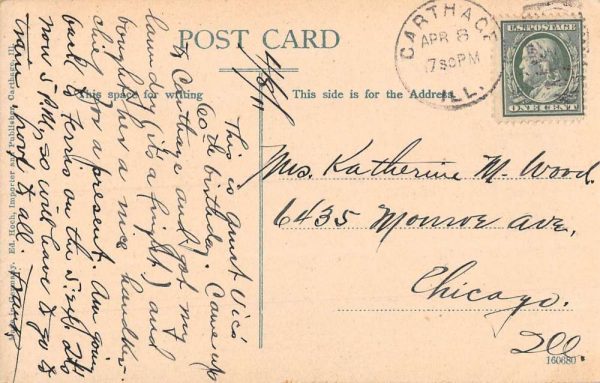 POST CARD
This space for writing
This side is for the Address.
CARTHAGE
APR 8
730PM
ILL.
U.S. POSTAGE
ONE CENT
4/8/11
This is Aunt Vic's
60th birthday. Came up
to Carthage and got my
laundry (it's a fright) and
bought her a nice handker-
chief for a present. Am going
back to Ferris on the
now 5 P.M. so will have to go to
train. Love to all. Frank
Mrs. Katherine M. Wood.
6435 Monroe Ave,
Chicago.
Ill.
160680
Made in Germany. Ed. Hoch, Importer and Publisher, Carthage, Ill.